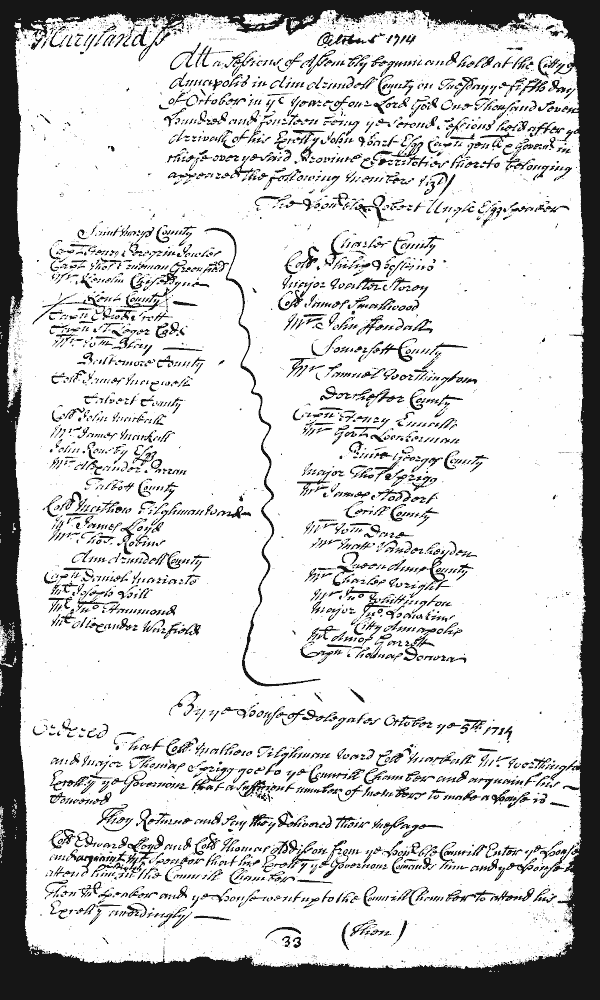 Maryland ss
October 5 1714
Att a Sessions of Assembly begunn and held at the Citty of
Annapolis in Ann Arundell County on Tuesday ye fifth day
of October in ye Yeare of our Lord God One Thousand Seven
Hundred and fourteen being ye Second Sessions held after ye
Arrivall of his Excelly John Hart Esqr Captn genll & Governr in
chiefe over ye said Province & Territories thereto belonging
appeared the following members Vizt/
The Honble Robert Ungle Esqr Speaker
Saint Marys County
Capt Henry Peregrin Jowles
Capt Thos Trueman Greenfield
Mr Kenelm Cheseldyne
Kent County
Captn Edwd Scott
Captn St Leger Codd
Mr Wm Blay
Baltemore County
Coll James Maxwell
Calvert County
Coll John Mackall
Mr James Mackall
John Rousby Esqr
Mr Alexander Parran
Talbott County
Coll Mathew Tilghman Ward
Mr James Lloyd
Mr Thos Robins
Ann Arundell County
Captn Daniel Mariarte
Mr Joseph Hill
Mr Jno Hammond
Mr Alexander Warfield
Charles County
Coll Philip Hoskins
Major Walter Storey
Coll James Smallwood
Mr John Fendall
Somersett County
Mr Samuel Worthington
Dorchester County
Captn Henry Ennalls
Mr Govt Loockerman
Prince Georges County
Major Thos Sprigg
Mr James Stoddert
Cecill County
Mr Wm Dare
Mr Matt Vanderheyden
Queen Anns County
Mr Charles Wright
Mr Jno Whittington
Major Jno Hawkins
Citty Annapolis
Mr Amos Garrett
Captn Thomas Docwra
By ye House of Delegates October ye 5th 1714
Ordered
That Coll Mathew Tilghman Ward Coll Mackall Mr Worthington
and Major Thomas Sprigg goe to ye Councill Chamber and acquaint his
Excelly ye Governour that a sufficient number of members to make a House is
Convened
They Returne and say they Delivered their message
Coll Edward Lloyd and Coll Thomas Addison from ye Honble Councill Enter ye House
and acquaint Mr Speaker that his Excelly ye Governour Comands him and ye House to
attend him in the Councill Chamber
Then Mr Speaker and ye House went up to the Councill Chamber to attend his
Excelly accordingly
33
(Then)